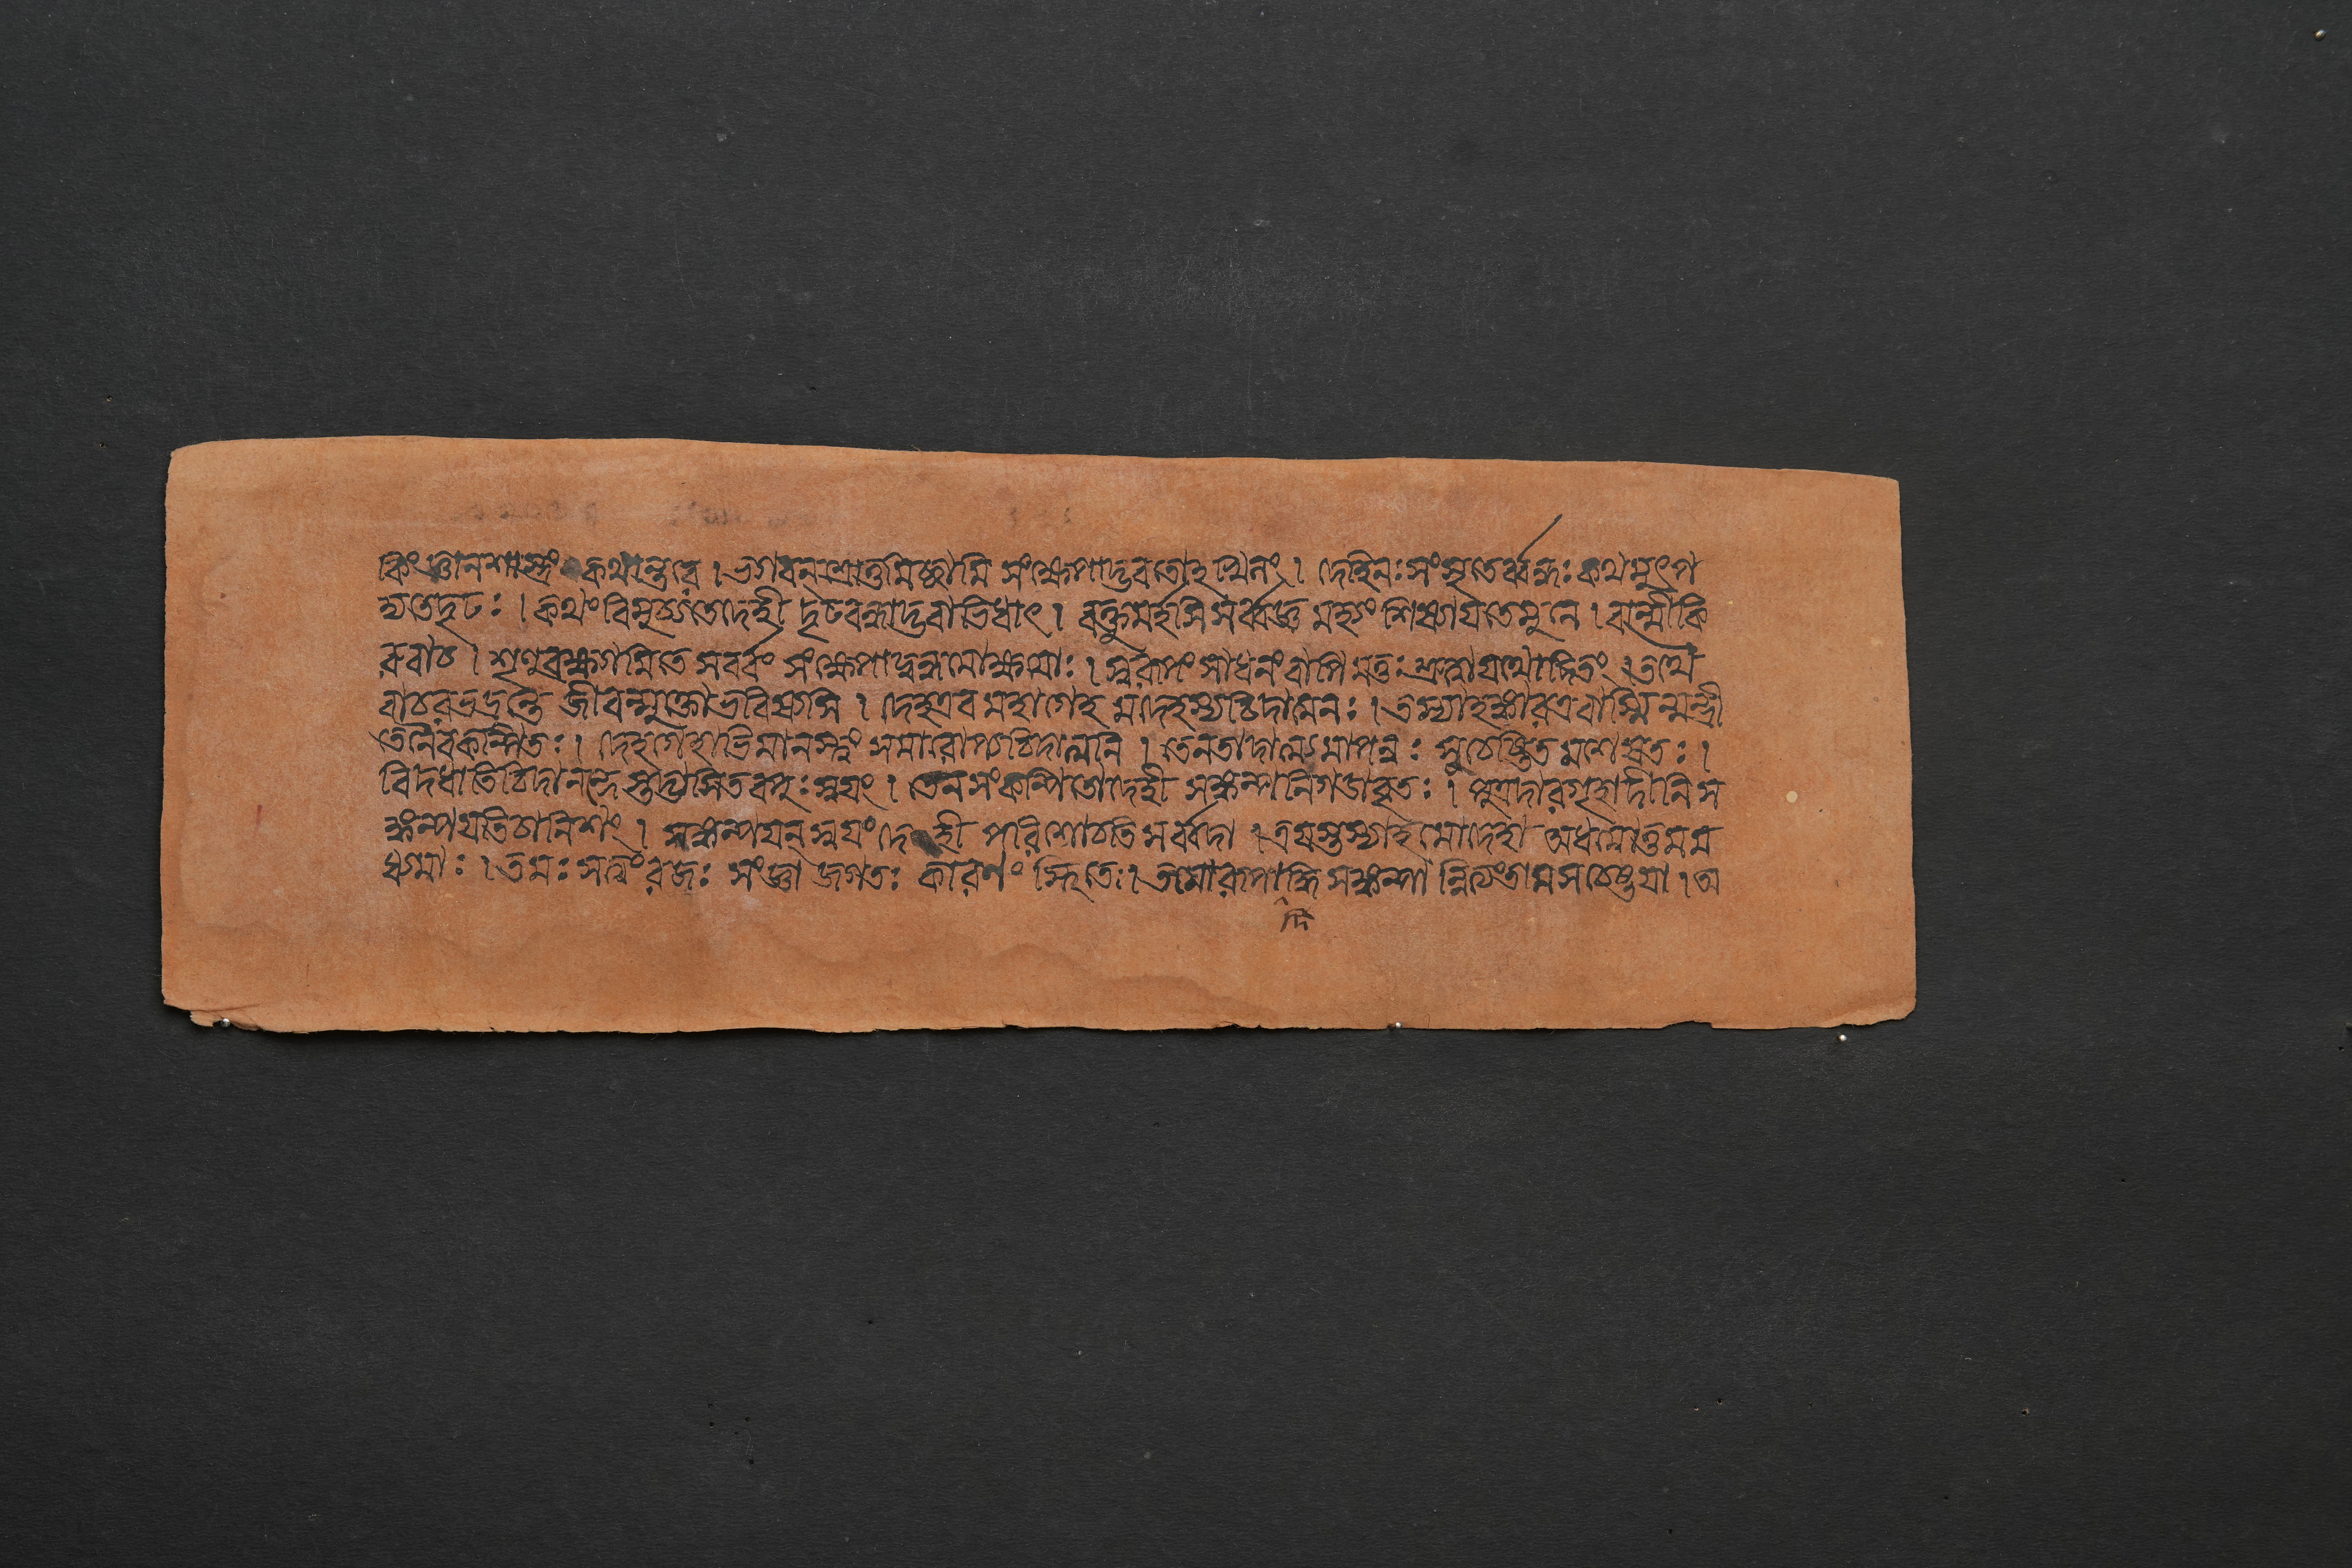 কিংজ্ঞানশাস্ত্রং কথান্তরে । ভগবন্শ্রোতুমিচ্ছামি সংক্ষেপাদ্ভবতোহখিলং । দেহিনঃসংসৃতের্ব্বন্ধঃকথমুৎপ
দ্যতেদৃঢঃ । কথংবিমুচ্যতেদেহী দৃঢবন্ধাদ্ভবাভিধাৎ । বক্তুমর্হসিসর্ব্বজ্ঞ মহ্যং শিষ্যায়তেমুনে । বাল্মীকি
রুবাচ । শৃণুবক্ষ্যামিতে সর্ব্বং সংক্ষেপাদ্বন্ধমোক্ষয়োঃ । স্বরূপং সাধনংবাপি মত্তঃশ্রুত্বাযথোদিতং । তথৈ
বাচরভদ্রন্তে জীবন্মুক্তোভবিষ্যসি । দেহএব মহাগেহ মদেহস্যচিদাত্মনঃ । তস্যাহঙ্কারএবাস্মিন্মন্ত্রী
তেনৈবকল্পিতঃ । দেহগেহাভিমানংস্বং সমারোপ্যচিদাত্মনি । তেনতাদাত্ম্যমাপন্নঃ স্বচেষ্টিতমশেষতঃ ।
বিদধাতিচিদানন্দে তদ্বাসিতবপুঃস্বয়ং । তেনসংকল্পিতোদেহী সঙ্কল্পনিগডাবৃতঃ । পুত্রদারগৃহাদীনিস
ঙ্কল্পয়তিচানিশং । সঙ্কল্পয়ন্স্বয়ংদেহী পরিশোচতিসর্ব্বদা । ত্রয়স্তস্যাহমোদেহা অধমোত্তমম
ধ্যমাঃ । তমঃসত্ত্বংরজঃ সংজ্ঞা জগতঃ কারণং স্থিতেঃ । তমোরূপাদ্ধিসঙ্কল্পা ন্নিত্যংতামসচেষ্টয়া । অ